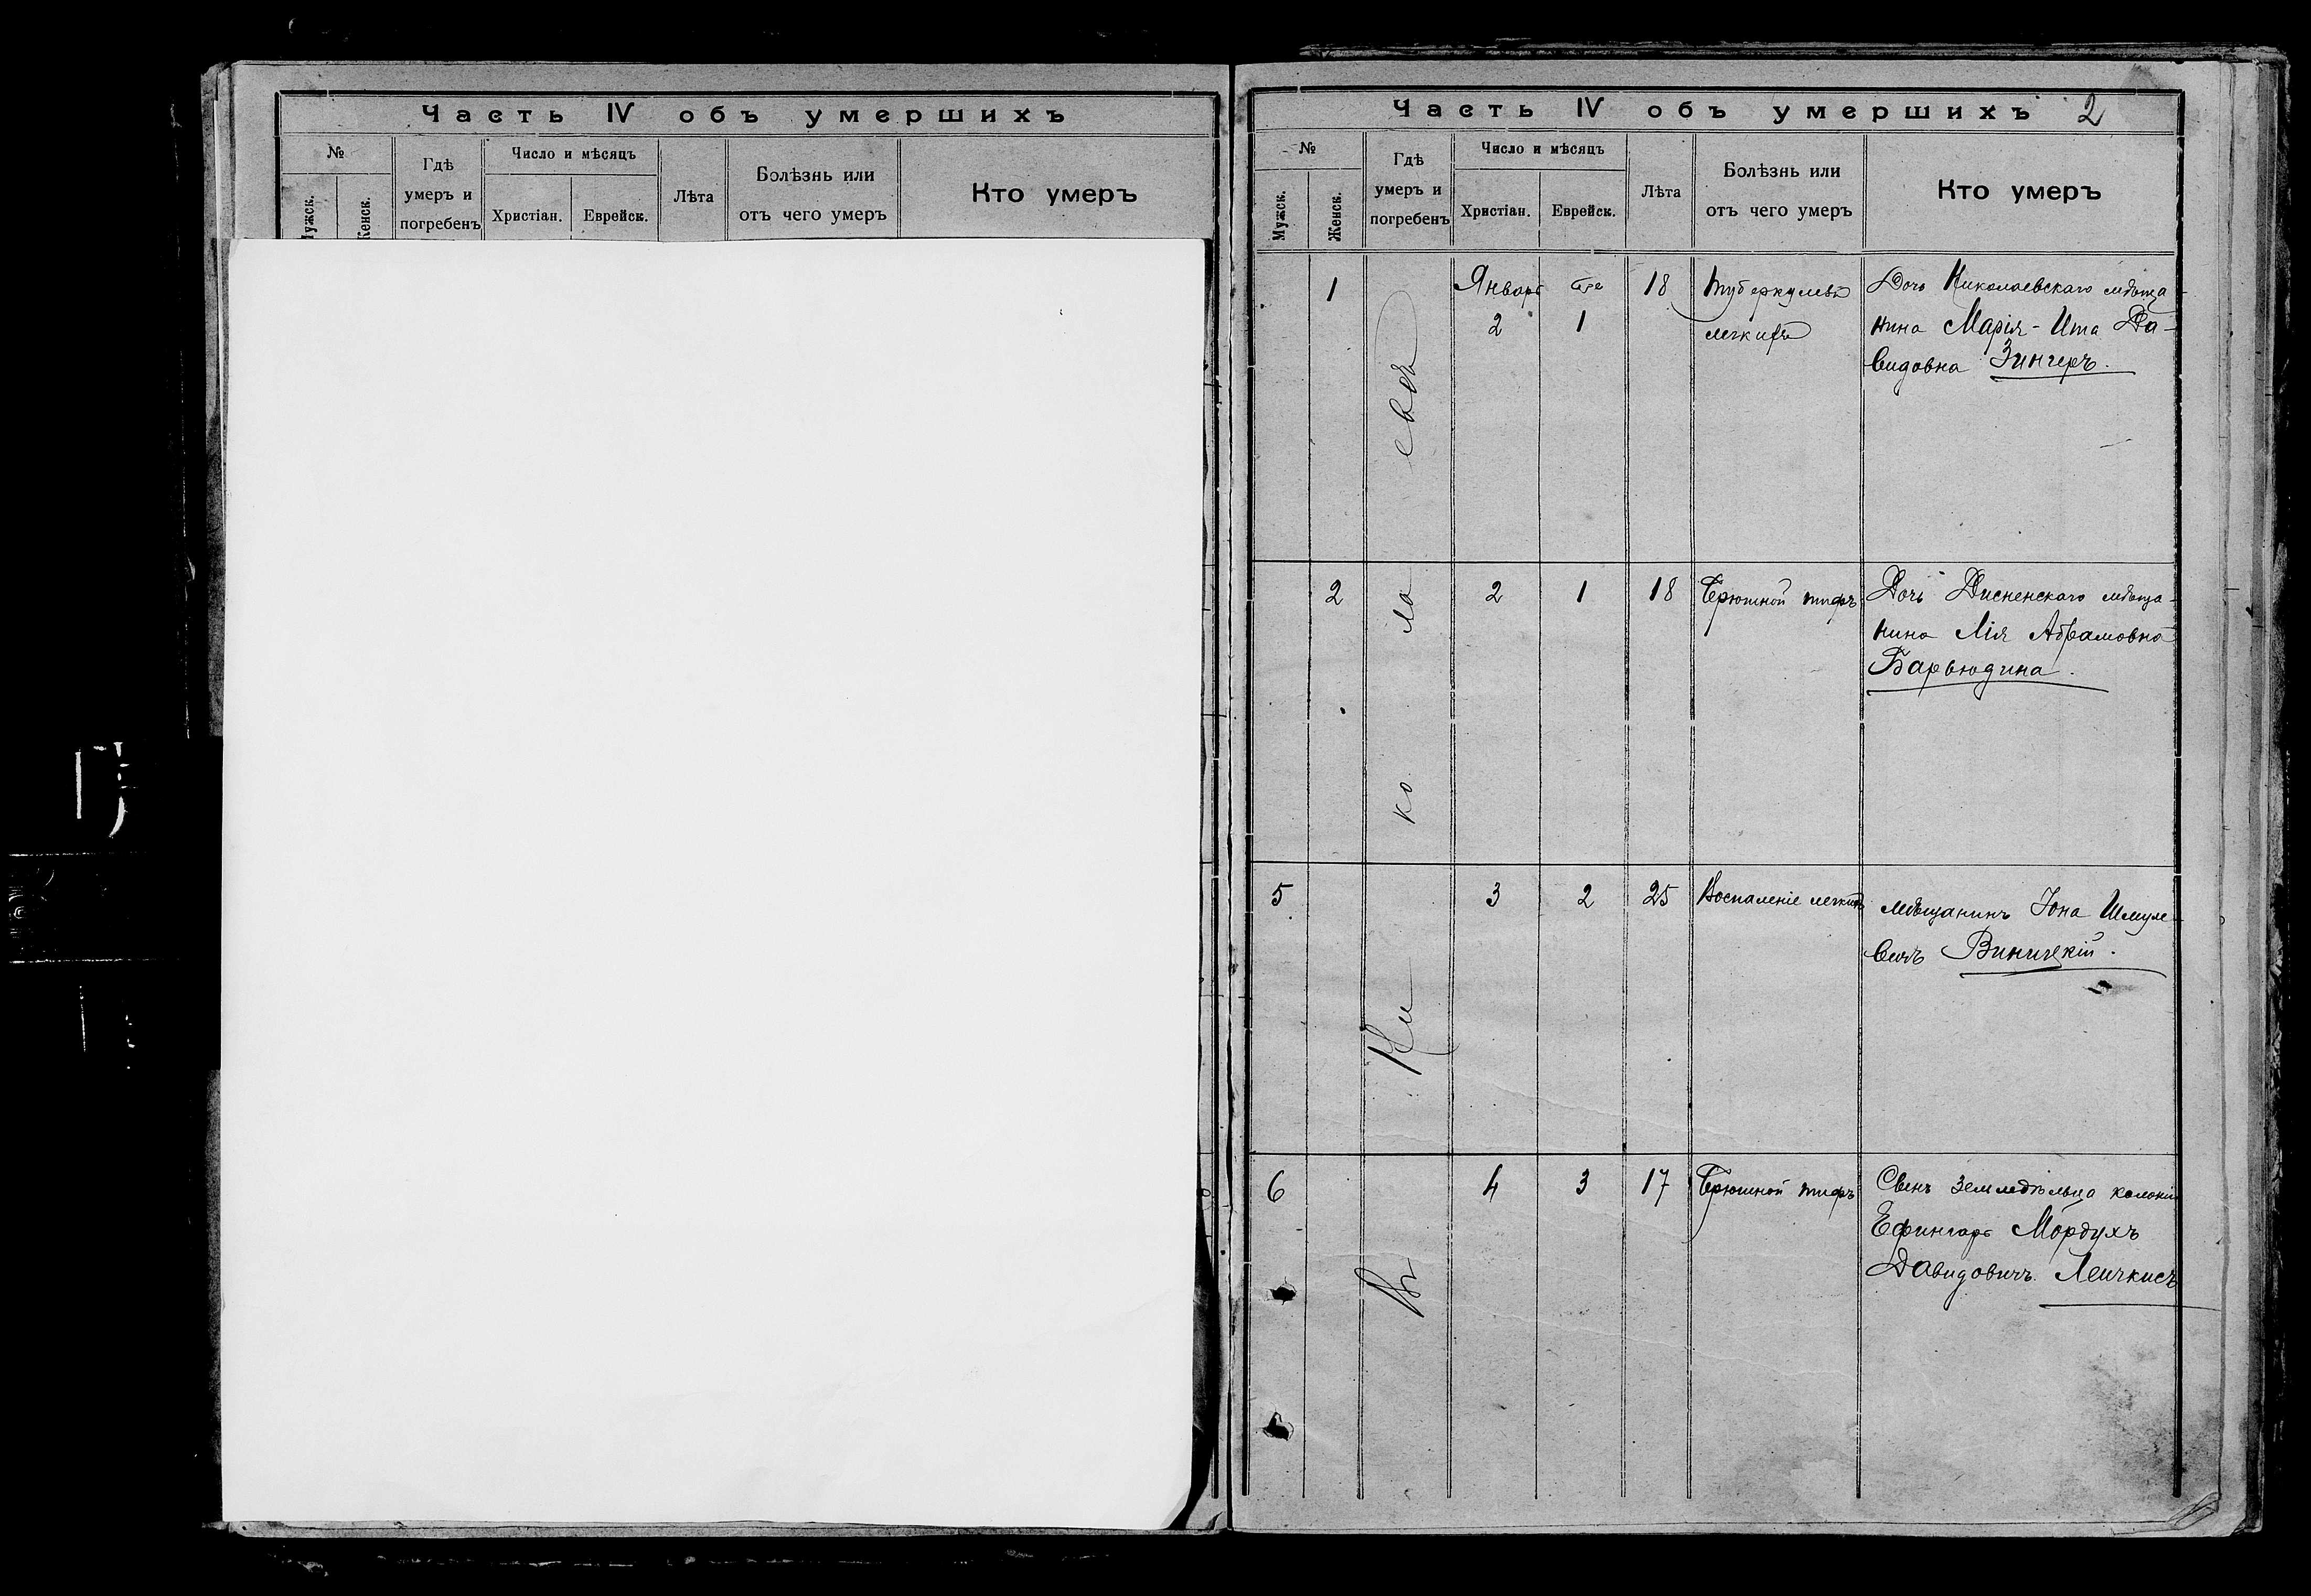 Часть IV объ умершихъ
№
Мужск.
Женск.
Гдѣ
умеръ и
погребенъ
Число и мѣсяцъ
Христіан.
Еврейск.
Лѣта
Болѣзнь или
отъ чего умеръ
Кто умеръ
Часть IV объ умершихъ 2
№
Мужск.
Женск.
Гдѣ
умеръ и
погребенъ
Число и мѣсяцъ
Христіан.
Еврейск.
Лѣта
Болѣзнь или
отъ чего умеръ
Кто умеръ
Въ Николаевѣ
1
Январь
2
1
18
Туберкулезъ
легкихъ
Дочь Николаевскаго мѣща-
нина Марія-Ита Да-
видовна Зингеръ.
2
2
1
18
Брюшной тифъ
Дочь Дисненскаго мѣща-
нина Лія Абрамовна
Барьюдина.
5
3
2
25
Воспаленіе легкихъ
Мѣщанинъ Іона Шмуле-
вичъ Виницкій.
6
4
3
17
Брюшной тифъ
Сынъ земледѣльца колоніи
Ефингаръ Мордухъ
Давидовичъ Леичкисъ